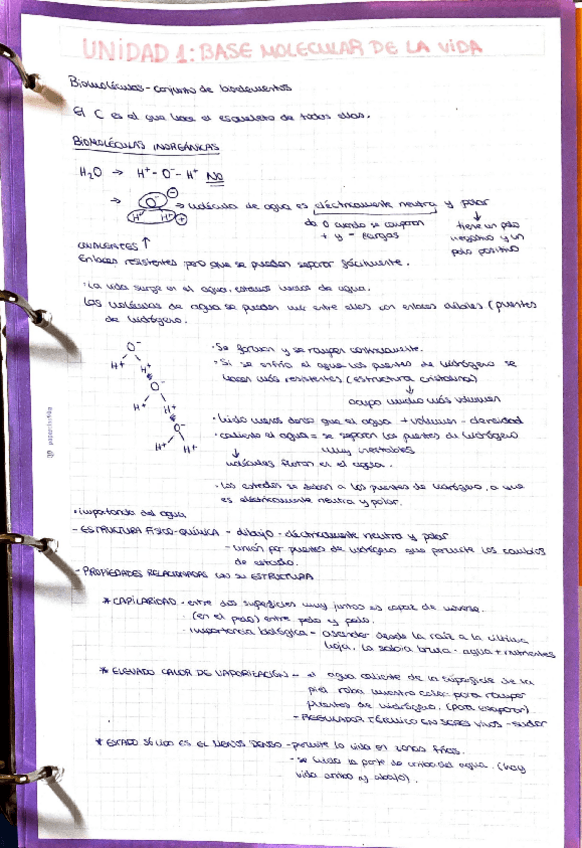 UNIDAD 1: BASE MOLECULAR DE LA VIDA
Biomoléculas - conjunto de bioelementos
El C es el que hace el esqueleto de todas ellas.
BIOMOLÉCULAS INORGÁNICAS
H2O → H+ - O- - H+ NO
→ O- H+ H+ - + → molécula de agua es eléctricamente neutra y polar
da 0 cuando se
+ y - cargas
tiene un polo
negativo y un
polo positivo
↑
Enlaces resistentes pero que se pueden separar fácilmente.
· La vida surge en el agua, estamos llenos de agua.
Las moléculas de agua se pueden unir entre ellas con enlaces débiles (puentes
de hidrógeno.
O-
H+ H+
O-
H+ H+
O-
H+ H+
· Se forman y se rompen continuamente.
· Si se enfría el agua los puentes de hidrógeno se
hacen más resistentes (estructura cristalina)
↓
ocupa mucho más volumen
· hielo menos denso que el agua + volumen - densidad
· caliento el agua = se separan los puentes de hidrógeno
↓ muy inestables
moléculas flotan en el agua.
· Los estados se deben a los puentes de hidrógeno, a que
es eléctricamente neutra y polar.
· importancia del agua
- ESTRUCTURA FÍSICO-QUÍMICA - dibujo - eléctricamente neutra y polar
- unión por puentes de hidrógeno que permite los cambios
de estado.
- PROPIEDADES RELACIONADAS con su ESTRUCTURA
* CAPILARIDAD - entre dos superficies muy juntas es capaz de moverse.
· (en el pelo) entre pelo y pelo.
· importancia biológica = ascender desde la raíz a la última
hoja, la sabia bruta - agua + nutrientes
* ELEVADO CALOR DE VAPORIZACIÓN - el agua caliente de la superficie de la
piel roba nuestro calor para romper
puentes de hidrógeno. (para evaporar)
- REGULADOR TÉRMICO EN SERES VIVOS - sudor
* ESTADO SÓLIDO ES EL MENOS DENSO - permite la vida en zonas frías.
- se hiela la parte de arriba del agua. (hay
vida arriba y abajo).